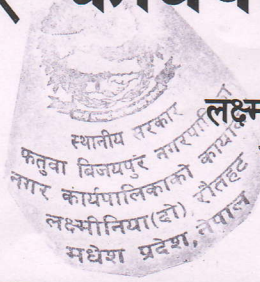 लक्ष्म
स्थानीय सरकार
फतुवा बिजयपुर नगरपालिका
नगर कार्यपालिकाको कार्यालय
लक्ष्मीनिया(दो) रौतहट
मधेश प्रदेश, नेपाल